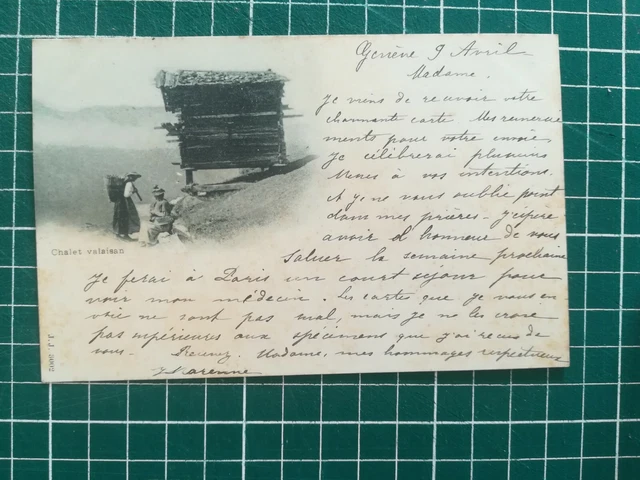 Genève 9 Avril
Madame.
Je viens de recevoir votre
charmante carte Mes remercie
ments pour votre envoi
Je célébrerai plusieurs
Messes à vos intentions.
et je ne vous oublie point
dans mes prières - j'espère
avoir l'honneur de vous
Saluer la semaine prochaine
Je ferai à Paris un court séjour pour
voir mon médecin. Les cartes que je vous en
voie ne sont pas mal, mais je ne les crois
pas supérieures aux spécimens que j'ai reçus de
vous - Recevez, Madame, mes hommages respectueux
Chalet valaisan
J. J. 5002